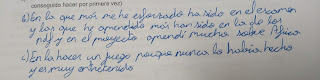 conseguido hacer por primera vez)
b) En la que más me he esforzado ha sido en el examen
y las que he aprendido más han sido en la de los
y en el proyecto aprendí mucho sobre África
c) En la hacer un juego porque nunca lo había hecho
y es muy entretenido